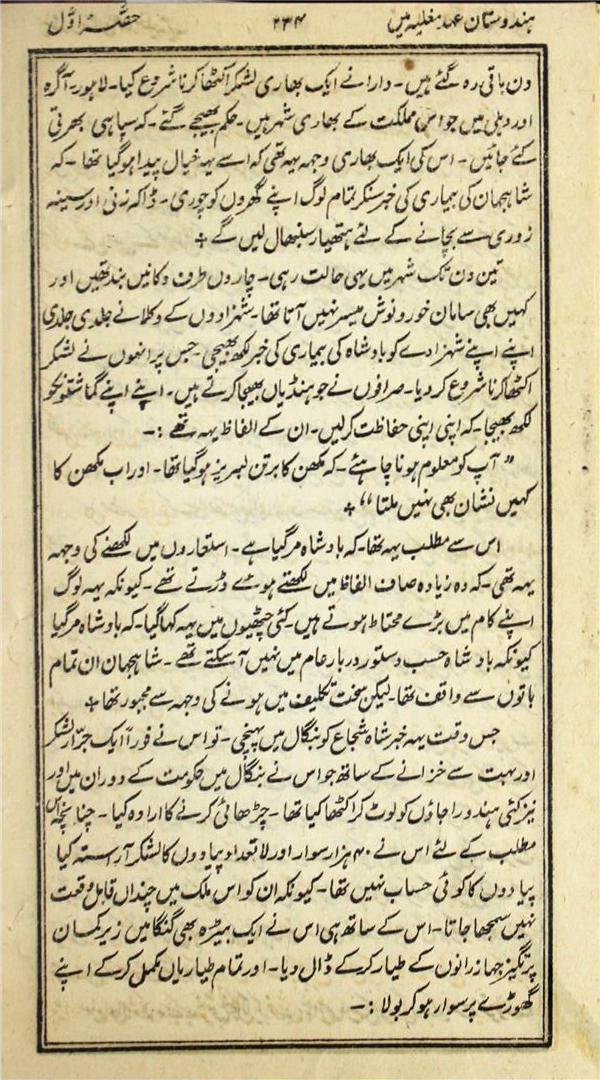 ہندوستان عہد مغلیہ میں ۲۳۴ حصّہ اوّل
دن باقی رہ گئے ہیں۔ دارا نے ایک بھاری لشکر اکٹھا کرنا شروع کیا۔ لاہور۔ آگرہ
اور دہلی میں جو اس مملکت کے بھاری شہر ہیں۔ حکم بھیجے گئے۔ کہ سپاہی بھرتی
کئے جائیں۔ اس کی ایک بھاری وجہ یہہ تھی کہ اسے یہہ خیال پیدا ہو گیا تھا۔ کہ
شاہجہان کی بیماری کی خبر سنکر تمام لوگ اپنے گھروں کو چوری۔ ڈاکہ زنی اور سینہ
زوری سے بچانے کے لئے ہتھیار سنبھال لیں گے +
تین دن تک شہر میں یہی حالت رہی۔ چاروں طرف دکانیں بند تھیں اور
کہیں بھی سامان خور و نوش میسر نہیں آتا تھا۔ شہزادوں کے وکلا نے جلدی جلدی
اپنے اپنے شہزادے کو بادشاہ کی بیماری کی خبر لکھ بھیجی۔ جس پر انہوں نے لشکر
اکٹھا کرنا شروع کر دیا۔ صرافوں نے جو ہنڈیاں بھیجا کرتے ہیں۔ اپنے اپنے گماشتونکو
لکھ بھیجا۔ کہ اپنی اپنی حفاظت کر لیں۔ ان کے الفاظ یہہ تھے :۔
”آپ کو معلوم ہونا چاہئے۔ کہ مکھن کا برتن لبریز ہو گیا تھا۔ اور اب مکھن کا
کہیں نشان بھی نہیں ملتا“ +
اس سے مطلب یہہ تھا۔ کہ بادشاہ مر گیا ہے۔ استعاروں میں لکھنے کی وجہہ
یہہ تھی۔ کہ وہ زیادہ صاف الفاظ میں لکھتے ہوئے ڈرتے تھے۔ کیونکہ یہہ لوگ
اپنے کام میں بڑے محتاط ہوتے ہیں۔ کئی چٹھیوں میں یہہ کہا گیا۔ کہ بادشاہ مر گیا
کیونکہ بادشاہ حسب دستور دربار عام میں نہیں آ سکتے تھے۔ شاہجہان ان تمام
باتوں سے واقف تھا۔ لیکن سخت تکلیف میں ہونے کی وجہہ سے مجبور تھا +
جس وقت یہہ خبر شاہ شجاع کو بنگال میں پہنچی۔ تو اس نے فوراً ایک جرّار لشکر
اور بہت سے خزانے کے ساتھ جو اس نے بنگال میں حکومت کے دوران میں اور
نیز کئی ہندو راجاؤں کو لوٹ کر اکٹھا کیا تھا۔ چڑھائی کرنے کا ارادہ کیا۔ چنانچہ اس
مطلب کے لئے اس نے ۴۰ ہزار سوار اور لا تعداد پیادوں کا لشکر آراستہ کیا
پیادوں کا کوئی حساب نہیں تھا۔ کیونکہ ان کو اس ملک میں چنداں قابل وقعت
نہیں سمجھا جاتا۔ اس کے ساتھ ہی اس نے ایک بیڑہ بھی گنگا میں زیر کمان
پرتگیز جہازرانوں کے طیار کر کے ڈال دیا۔ اور تمام طیاریاں مکمل کر کے اپنے
گھوڑے پر سوار ہو کر بولا :۔